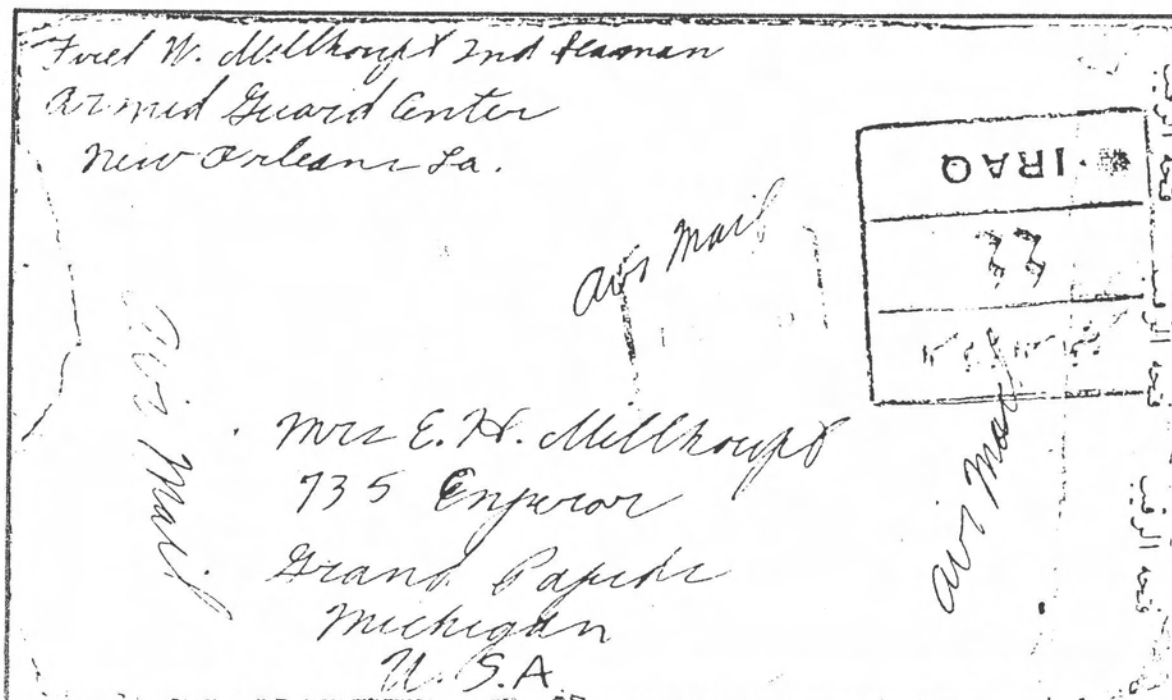 Fred W. Millhoupt 2nd Seaman
Armed Guard Center
New Orleans La.
Air Mail
IRAQ
Air Mail
Mrs E. H. Millhoupt
735 Emperor
Grand Rapids
Michigan
U.S.A
Air Mail
فتحه الرقيب